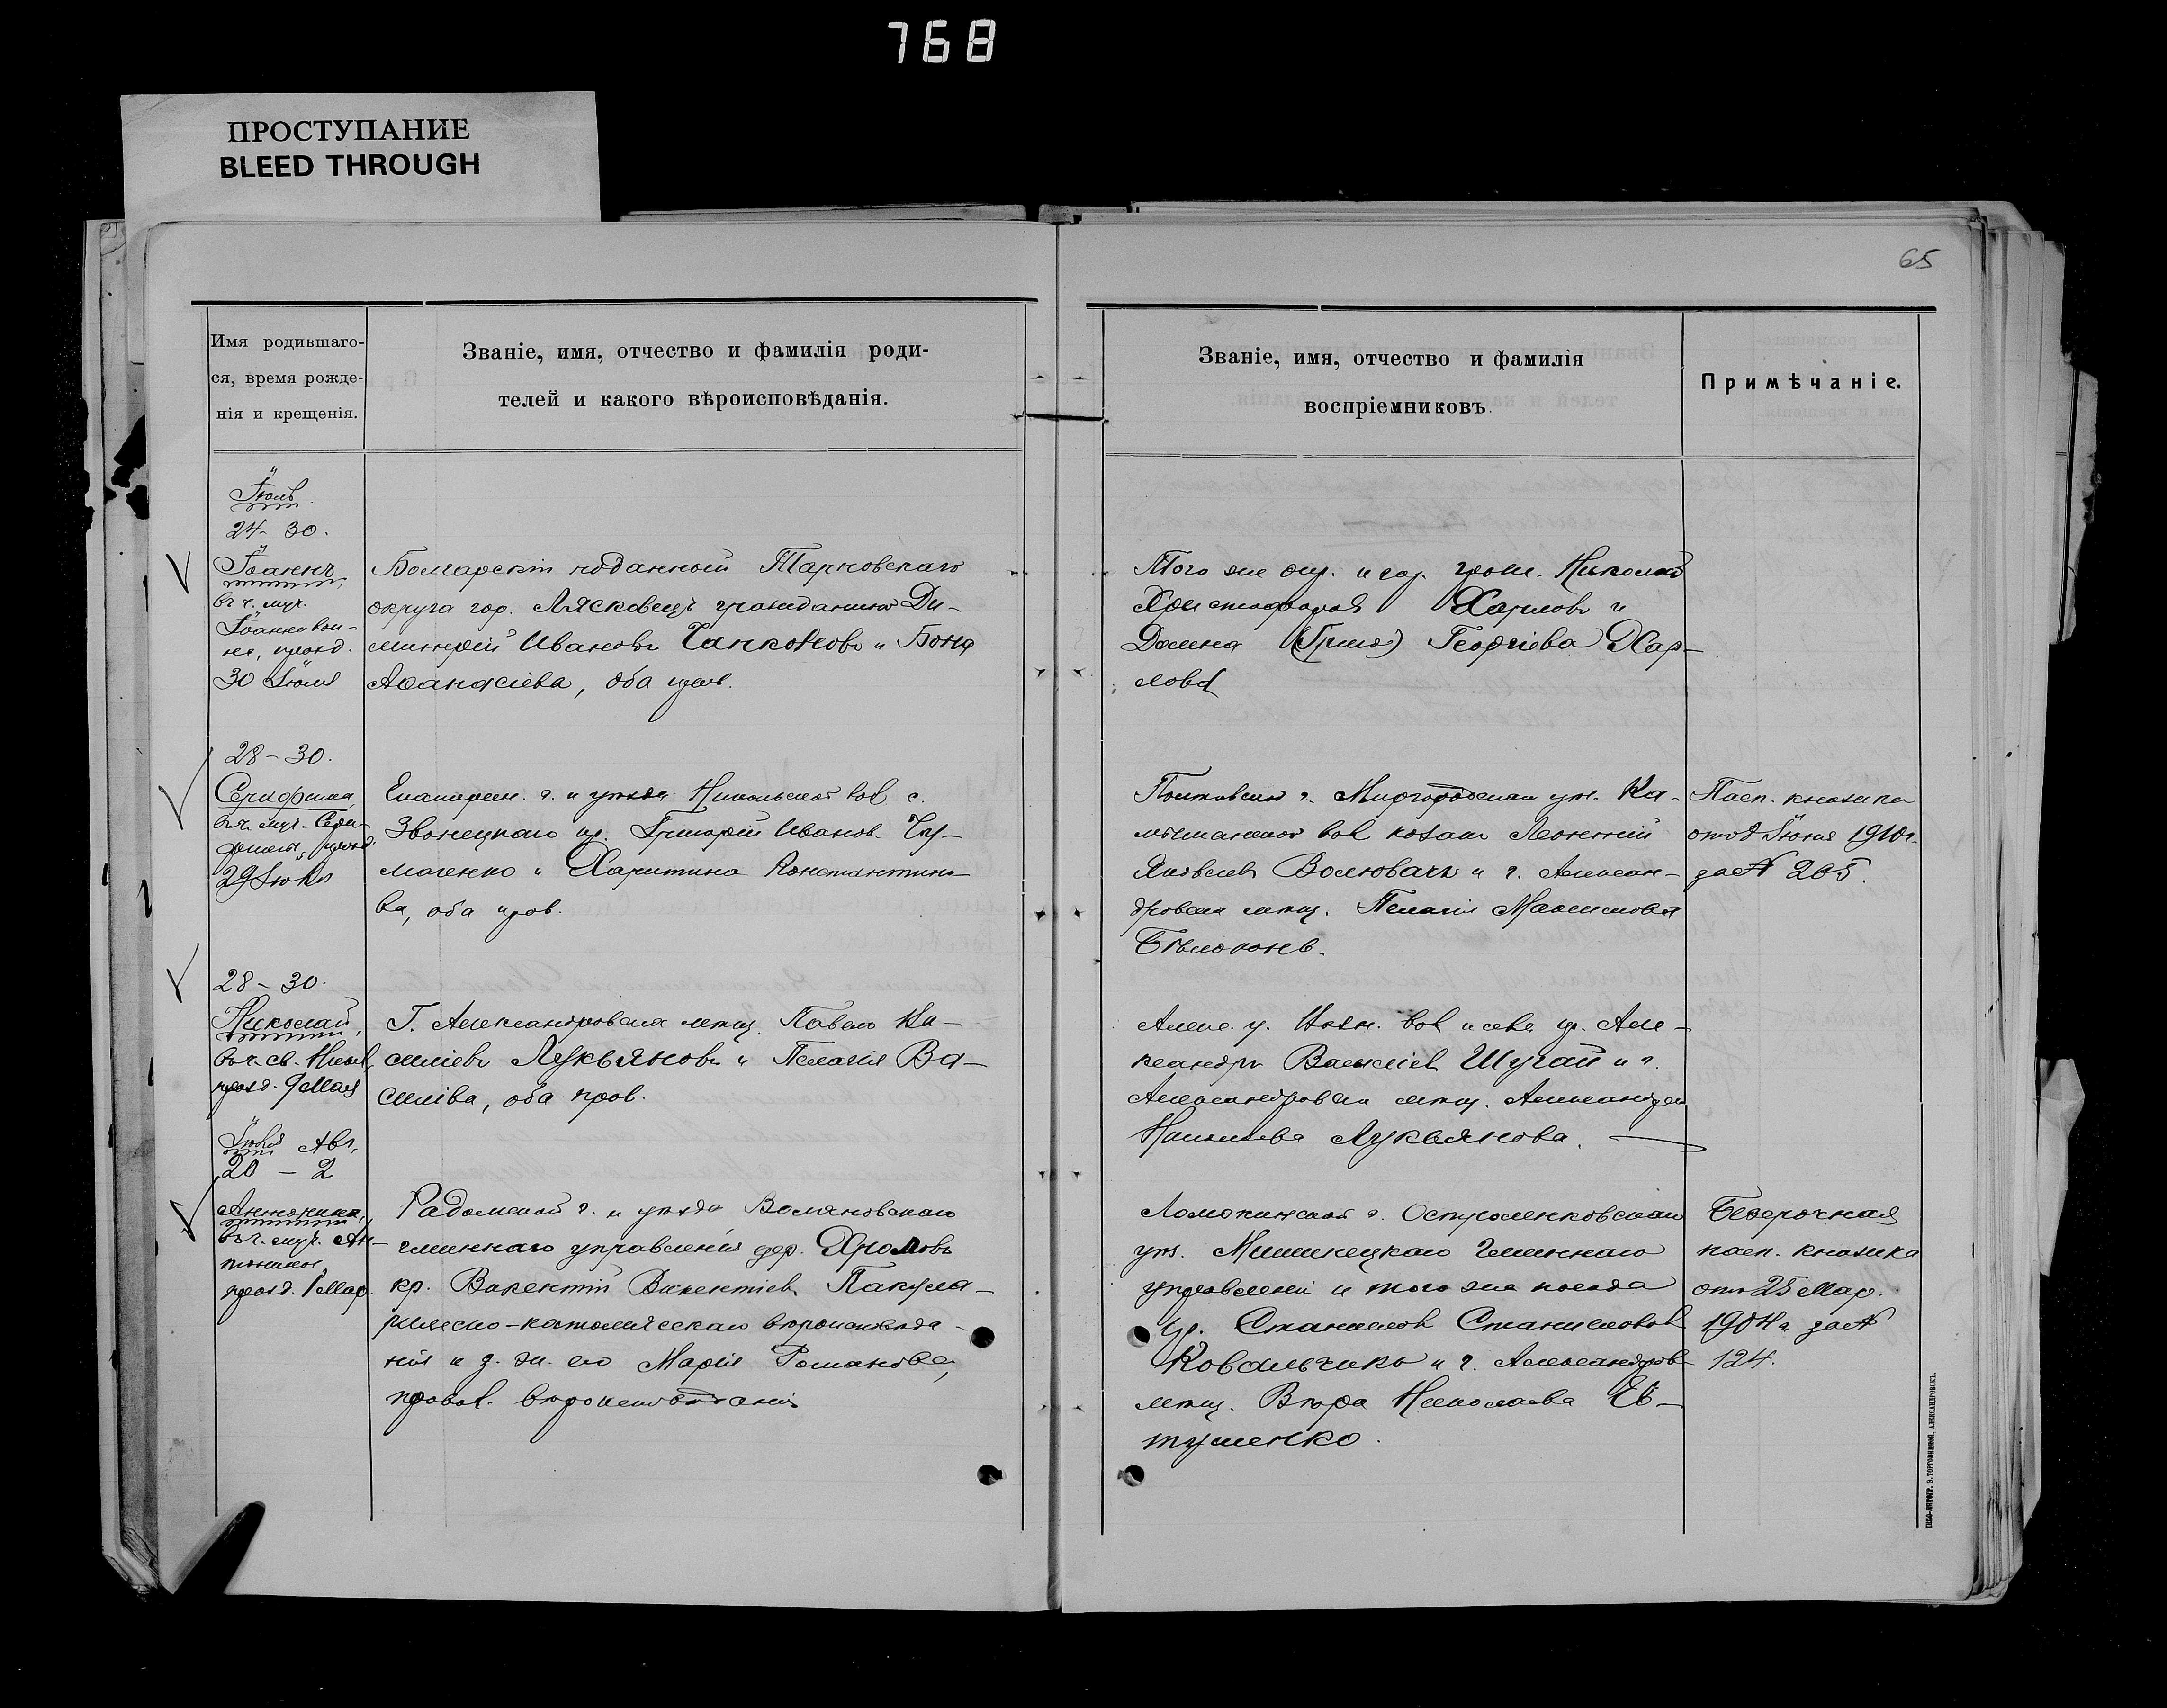 768
ПРОСТУПАНИЕ
BLEED THROUGH
65
Имя родившаго-
ся, время рожде-
нія и крещенія.
Званіе, имя, отчество и фамилія роди-
телей и какого вѣроисповѣданія.
Званіе, имя, отчество и фамилія
воспріемниковъ.
Примѣчаніе.
Іюль
24 - 30.
Іоаннъ,
въ ч. муч.
Іоанна вои-
на, празд.
30 Іюля
Болгарскій подданный Тарновскаго
округа гор. Лясковецъ гражданинъ Ди-
митрій Ивановъ Чапконовъ и Бона
Аѳанасіева, оба прав.
Того же окр. и гор. граж. Николай
Христофоровъ Харловъ и
Георгіева Хар-
лова
28 - 30.
Серафима,
въ ч. муч. Сера-
фимы, празд.
29 Іюля
Екатерин. г. и уѣзда Никольской вол. с.
Звонецкаго кр. Григорій Ивановъ Чу-
маченко и Харитина Константино-
ва, оба прав.
Полтавской г. Миргородскаго уѣз. Ка-
вол. козакъ Леонтій
Яковлевъ Волювачъ и г. Алексан-
дровска мѣщ. Пелагія Максимова
Бѣлоконь.
Пасп. книжка
1910 г.
за № 205.
28 - 30.
Николай,
въ ч. св. Никол.,
празд. 9 Мая
Г. Александровска мѣщ. Павелъ Ва-
силіевъ Лукьяновъ и Пелагія Ва-
силіева, оба прав.
Алекс. у. вол. и села кр. Але-
ксандръ Василіевъ Шугай и г.
Александровска мѣщ. Александра
Николаева Лукьянова.
Іюля Авг.
20 - 2
Антонина,
въ ч. муч. Ан-
тонины,
празд. 1 Мар.
Радомской г. и уѣзда Воляновскаго
гминнаго управленія дер.
кр. Викентій Викентіевъ Пакула
римско-католическаго вѣроисповѣда-
нія и з. ж. его Марія Романова,
правос. вѣроисповѣданія
Ломжинской г. Остроленковскаго
уѣз. Мышинецкаго гминнаго
управленія и того же посада
кр. Станиславъ Станиславовъ
Ковальчикъ и г. Александров.
мѣщ. Вѣра Николаева Ев-
тушенко.
Безсрочная
пасп. книжка
отъ 25 Мар.
1904 г. за №
124.